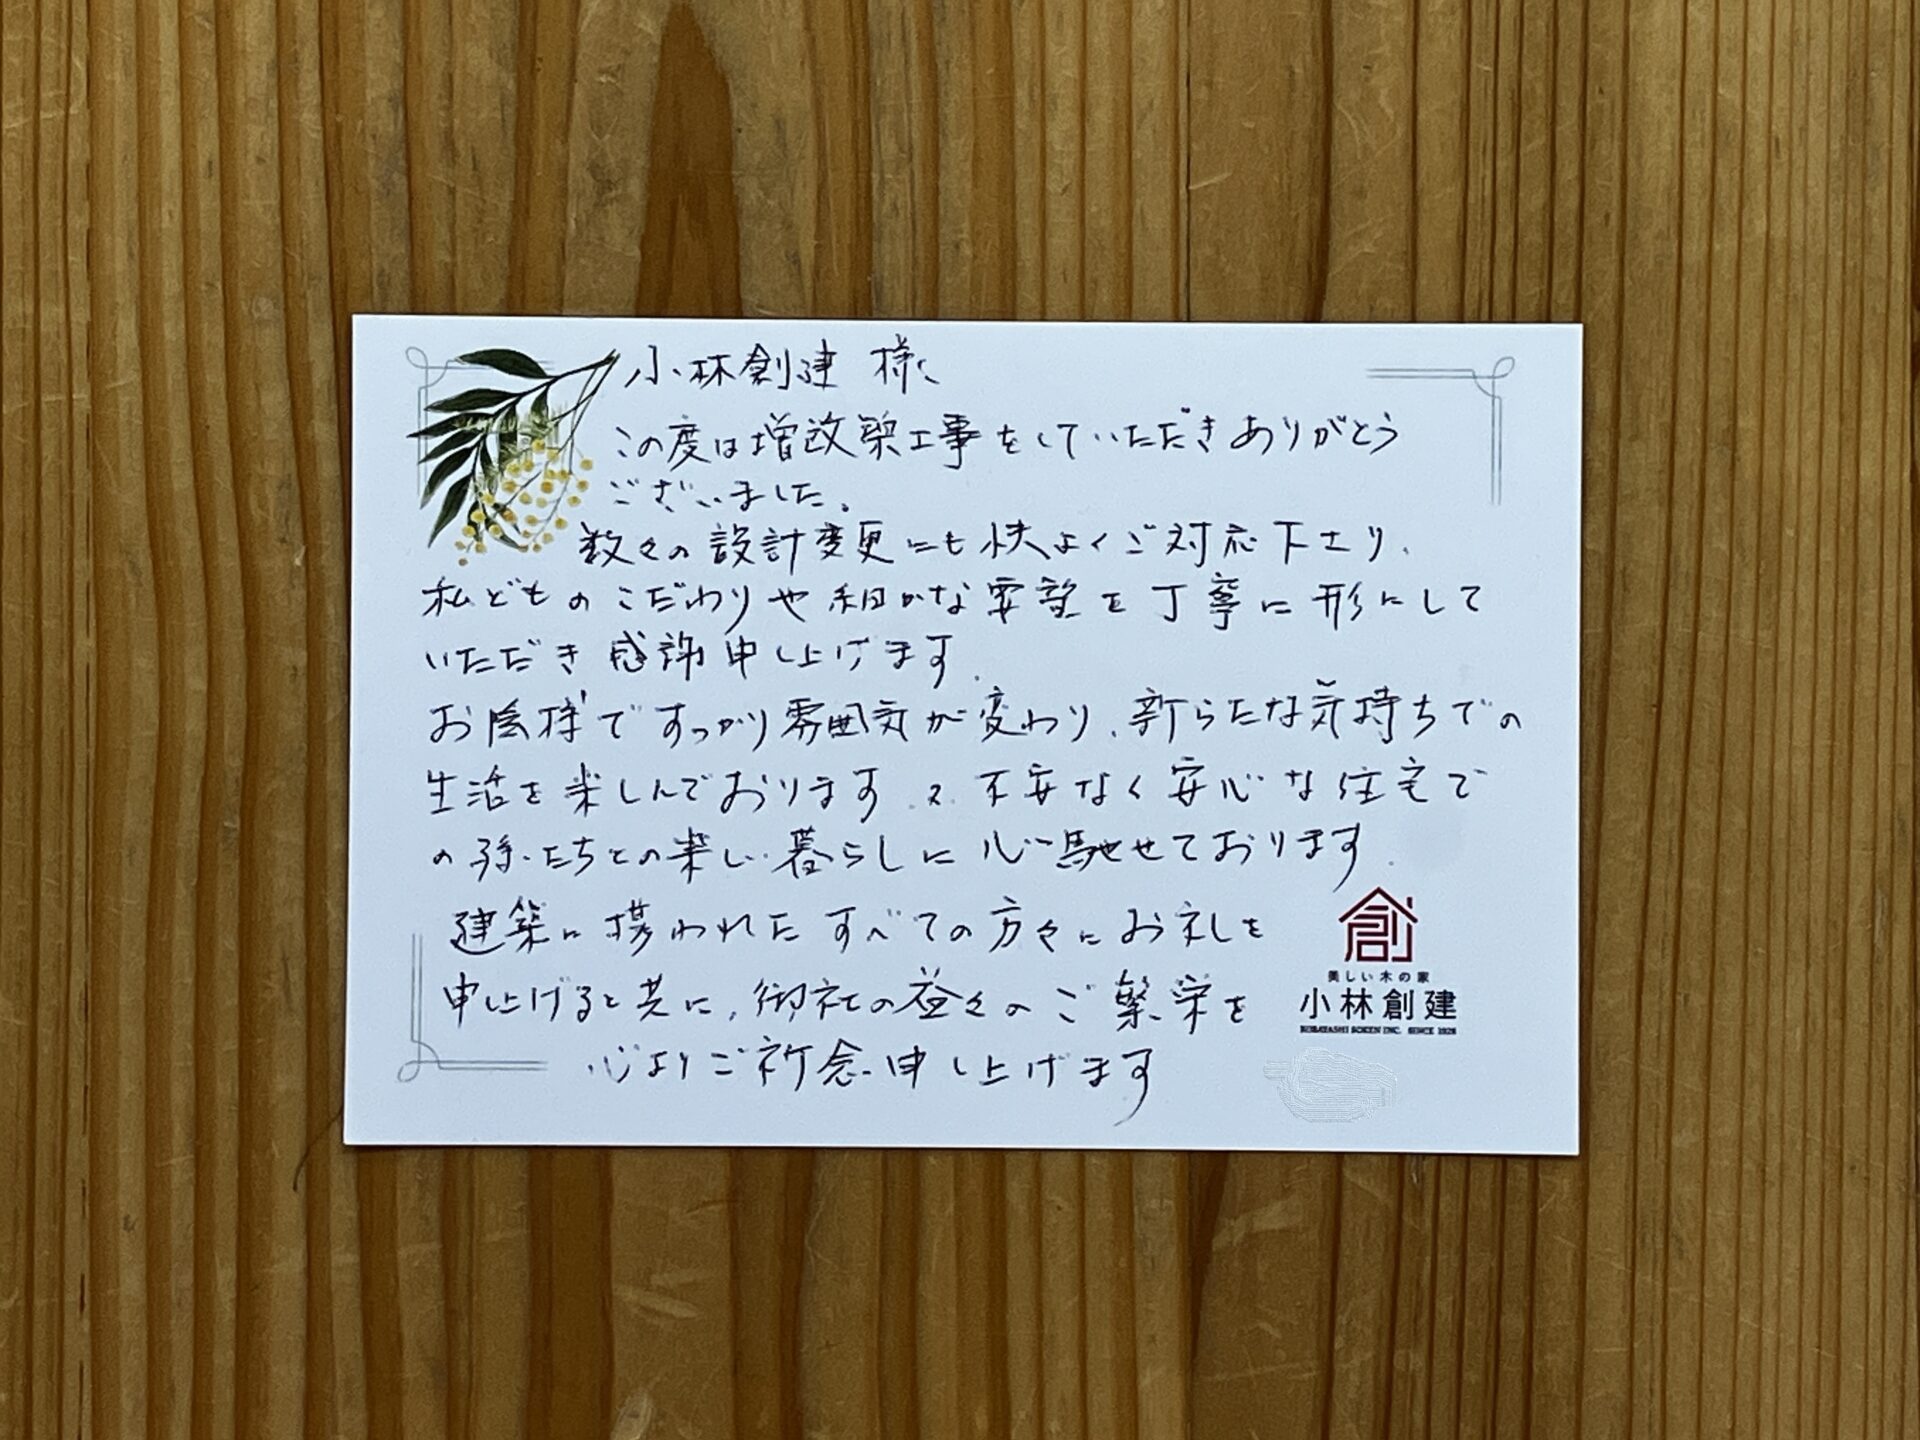 小林創建 様
この度は増改築工事をしていただきありがとう
ございました。
数々の設計変更にも快よくご対応下さり、
私どものこだわりや細かな要望を丁寧に形にして
いただき感謝申し上げます。
お陰様ですっかり雰囲気が変わり、新らたな気持ちでの
生活を楽しんでおります。又、不安なく安心な住宅で
の孫たちとの楽しい暮らしに心馳せております。
建築に携われたすべての方々にお礼を
申し上げると共に、御社の益々のご繁栄を
心よりご祈念申し上げます
創
美しい木の家
小林創建
KOBAYASHI SOKEN INC. SINCE 1928